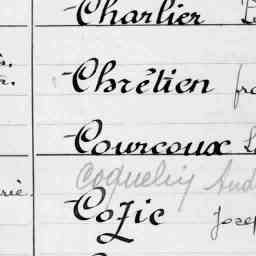 Charlier
Chrétien fra
Courcoux
Coquelin And
Cozic Josep